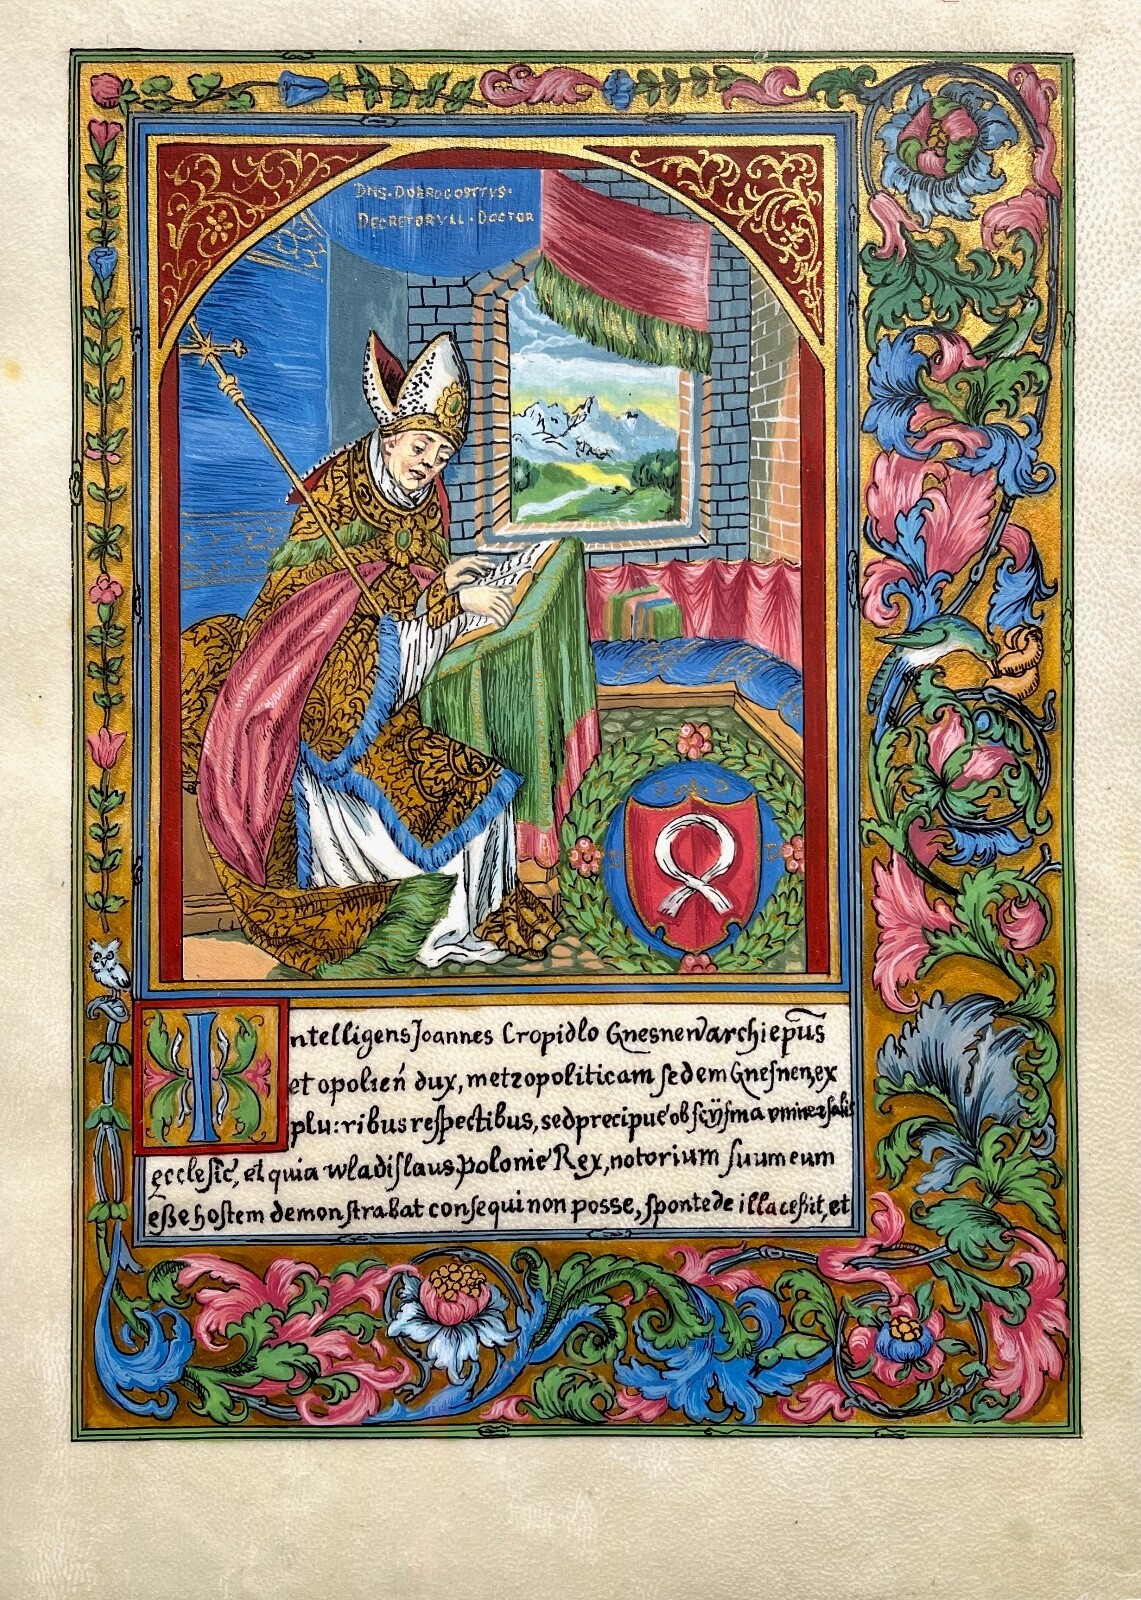 DNS·DOBROGOSTVS·
DECRETORVM·DOCTOR
Intelligens Joannes Cropidlo Gnesneñ archiepūs
et opolień dux, metropoliticam ſedem Gneſnen, ex
plu:ribus reſpectibus, sed precipue ob ſcÿſma vniuersalis
ecclesie, et quia wladiſlaus polonie Rex, notorium ſuum eum
eſse hoſtem demonſtrabat consequi non posse, ſponte de illa ceſsit, et